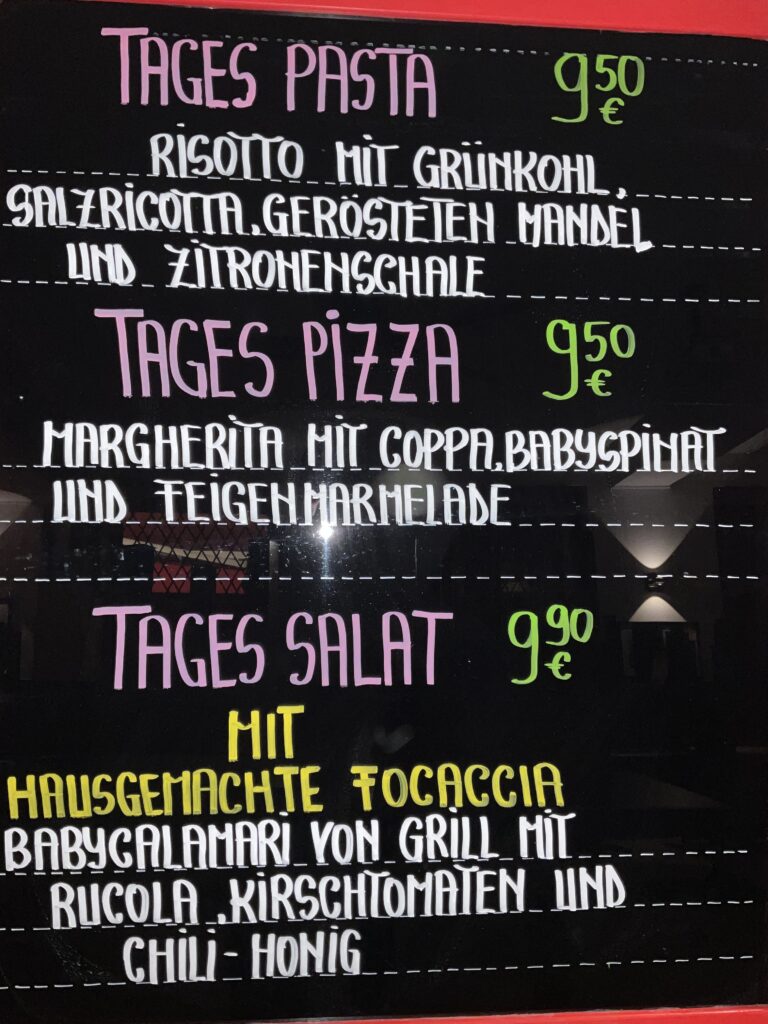 TAGES PASTA 9 50 €
RISOTTO MIT GRÜNKOHL,
SALZRICOTTA, GERÖSTETEN MANDEL
UND ZITRONENSCHALE
TAGES PIZZA 9 50 €
MARGHERITA MIT COPPA, BABYSPINAT
UND FEIGENMARMELADE
TAGES SALAT 9 90 €
MIT
HAUSGEMACHTE FOCACCIA
BABYCALAMARI VON GRILL MIT
RUCOLA, KIRSCHTOMATEN UND
CHILI-HONIG